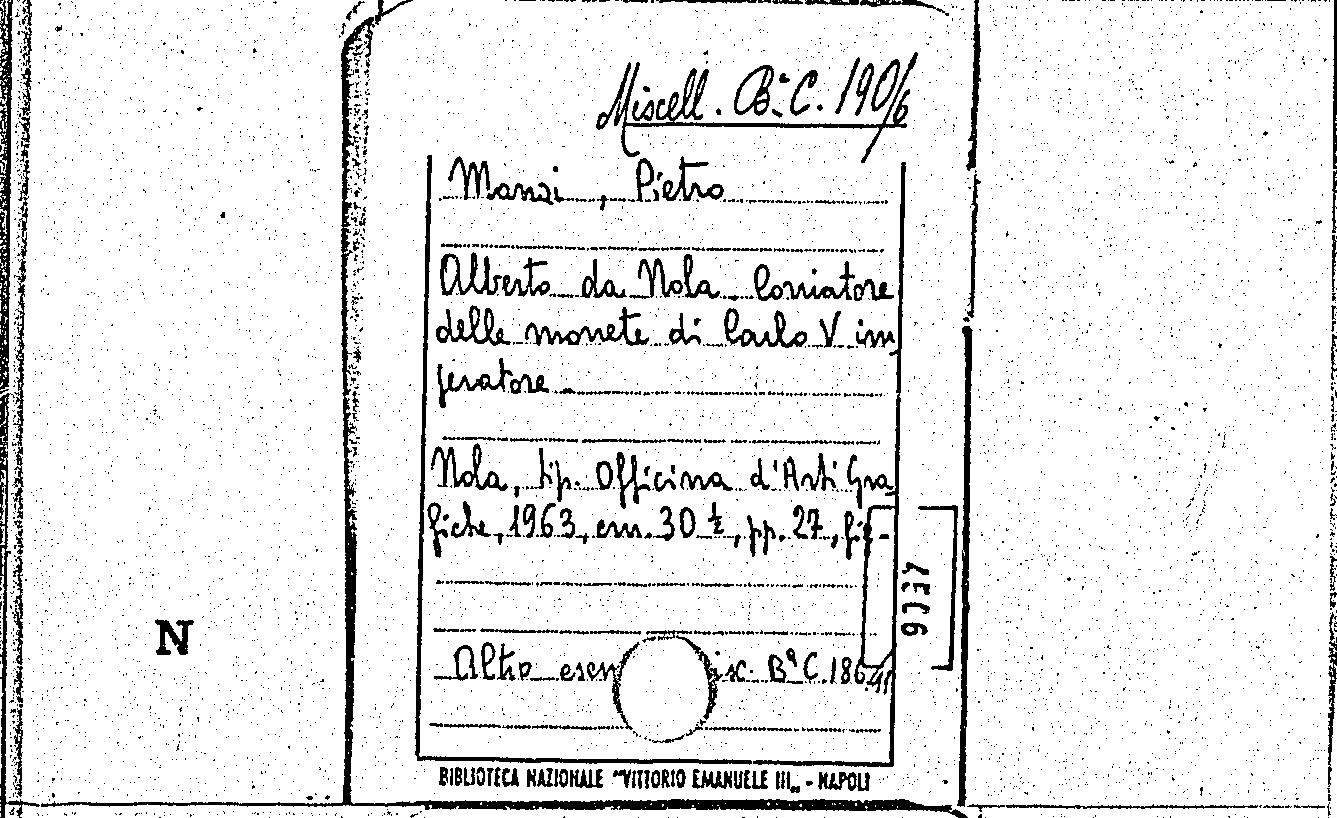 Miscell. Bª C. 190/6
Manzi, Pietro
Alberto da Nola. Coniatore
delle monete di Carlo V im
peratore.
Nola, tip. Officina d'Arti Gra
fiche, 1963, cm. 30 ½, pp. 27, fig.
Altro esem isc. Bª C. 186
N
BIBLIOTECA NAZIONALE "VITTORIO EMANUELE III„ - NAPOLI